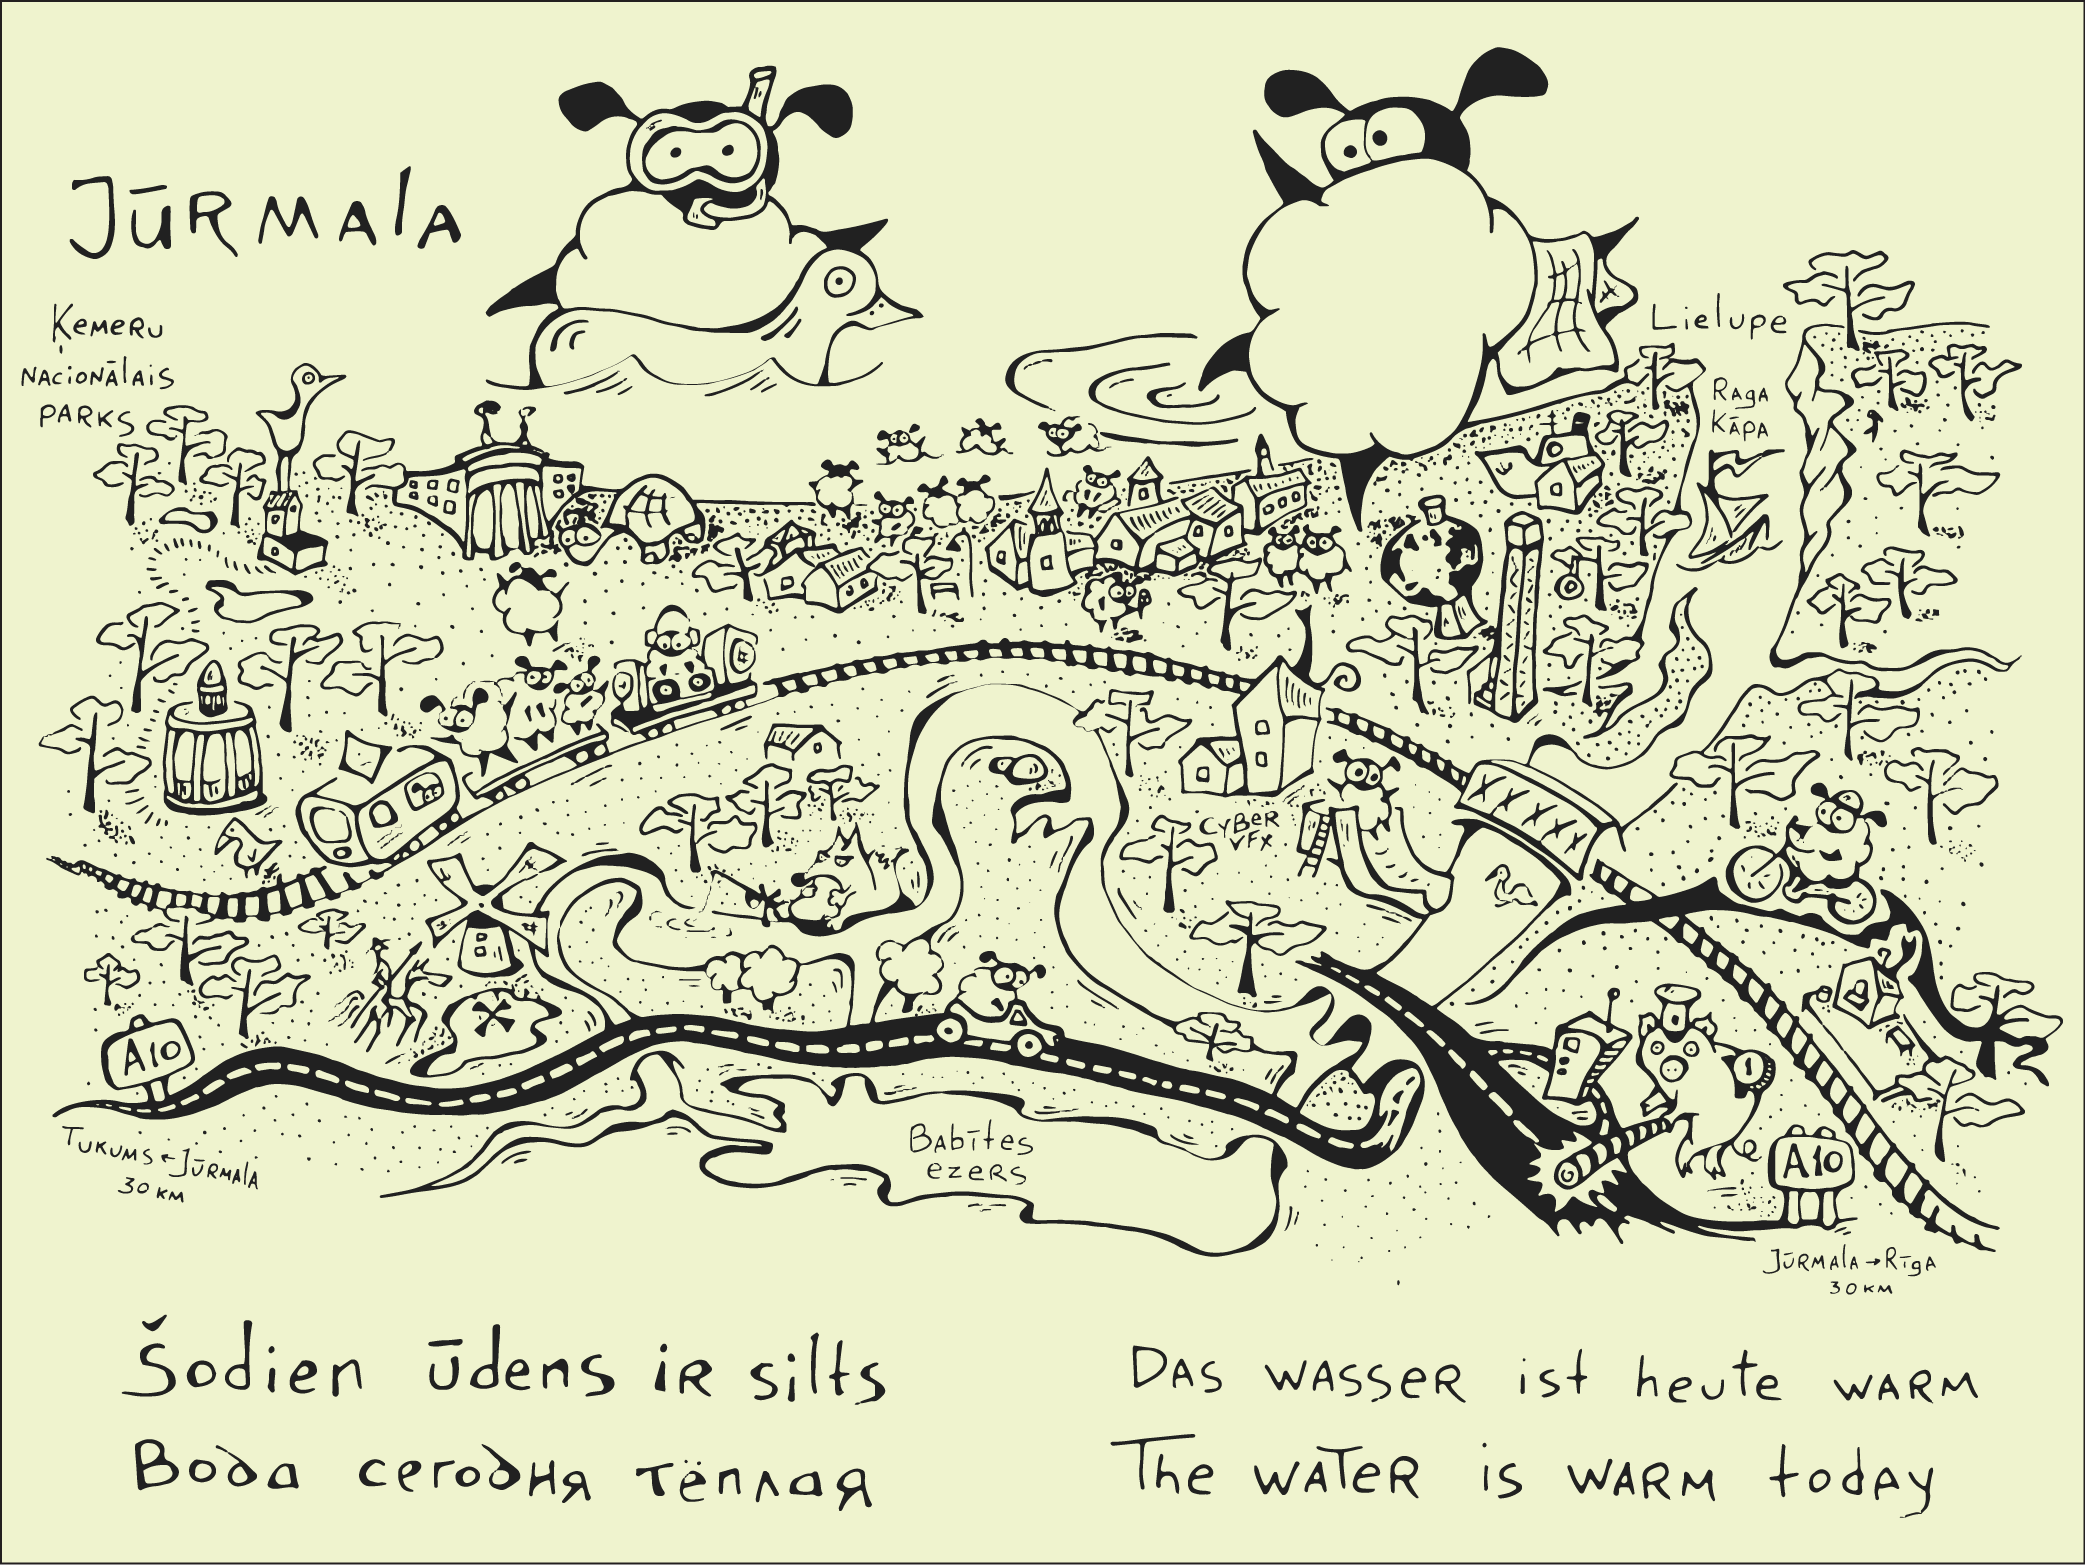 JŪRMALA
Ķemeru
NACIONĀLAIS
PARKS
Lielupe
Raga
Kāpa
CYBER
VFX
A10
Tukums ← Jūrmala
30 KM
Babītes
ezers
A10
Jūrmala → Rīga
30 KM
Šodien ūdens ir silts
Вода сегодня тёплая
Das wasser ist heute warm
The water is warm today